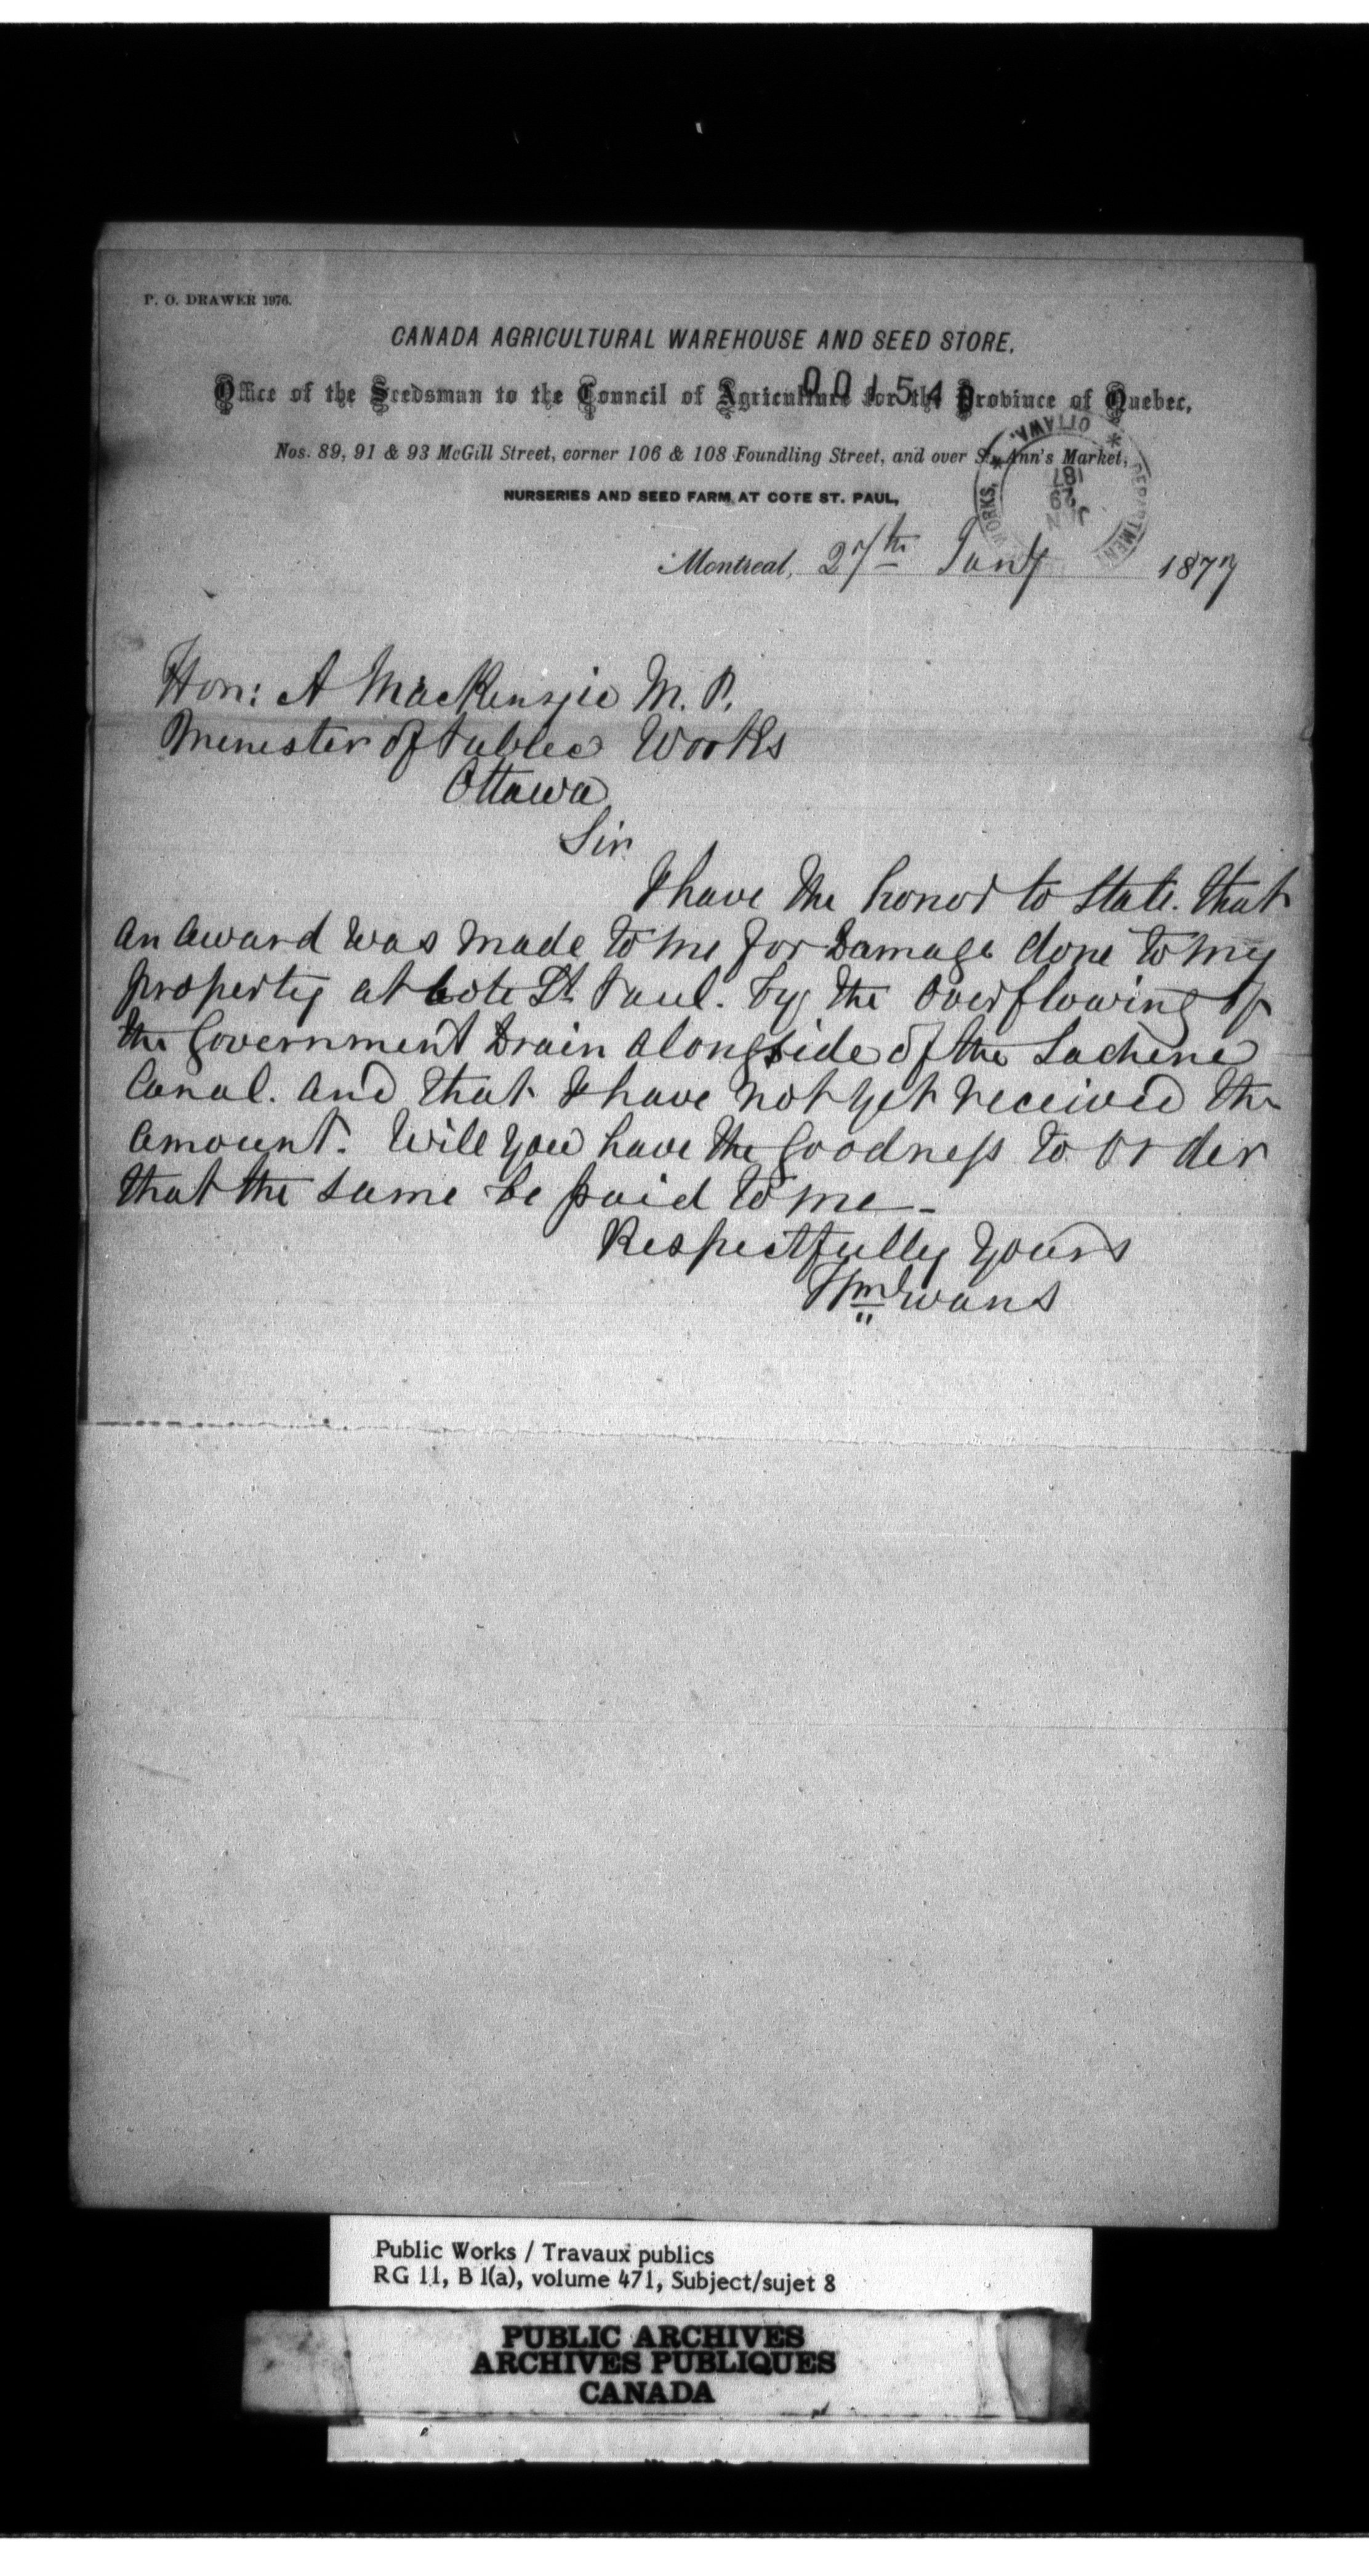 P. O. DRAWER 1976.
CANADA AGRICULTURAL WAREHOUSE AND SEED STORE,
Office of the Seedsman to the Council of Agriculture for the Province of Quebec,
00154
Nos. 89, 91 & 93 McGill Street, corner 106 & 108 Foundling Street, and over St. Ann's Market,
DEPARTMENT WORKS, * OTTAWA. *
JAN
29
187
NURSERIES AND SEED FARM, AT COTE ST. PAUL,
Montreal, 27th Jany 1877
Hon: A MacKenzie M. P.
Minister of Public Works
Ottawa
Sir
I have the honor to State. that
an award was made to me for Damage done to my
property at Cote St Paul. by the overflowing of
the Government Drain alongside of the Lachine
Canal. and that I have not yet received the
amount. Will you have the Goodness to order
that the same be paid to me -
Respectfully Yours
Wm Evans
Public Works / Travaux publics
RG 11, B 1(a), volume 471, Subject/sujet 8
PUBLIC ARCHIVES
ARCHIVES PUBLIQUES
CANADA